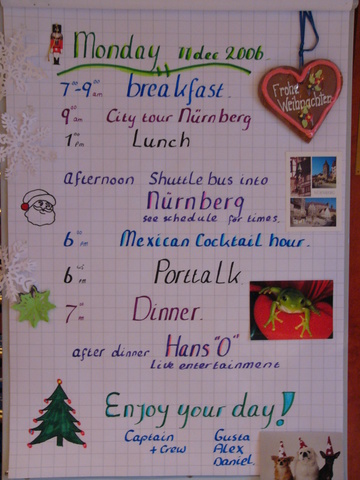 Monday 11 dec 2006
7⁰⁰-9⁰⁰ am breakfast.
Frohe
Weihnachten
9⁰⁰ am City tour Nürnberg
1⁰⁰ pm Lunch
afternoon Shuttle bus into
Nürnberg
see schedule for times.
6⁰⁰ pm Mexican Cocktail hour.
6 pm Porttalk.
7⁰⁰ pm Dinner.
after dinner Hans "O"
Live entertainment
Enjoy your day!
Captain
+ Crew
Gusta
Alex
Daniel.